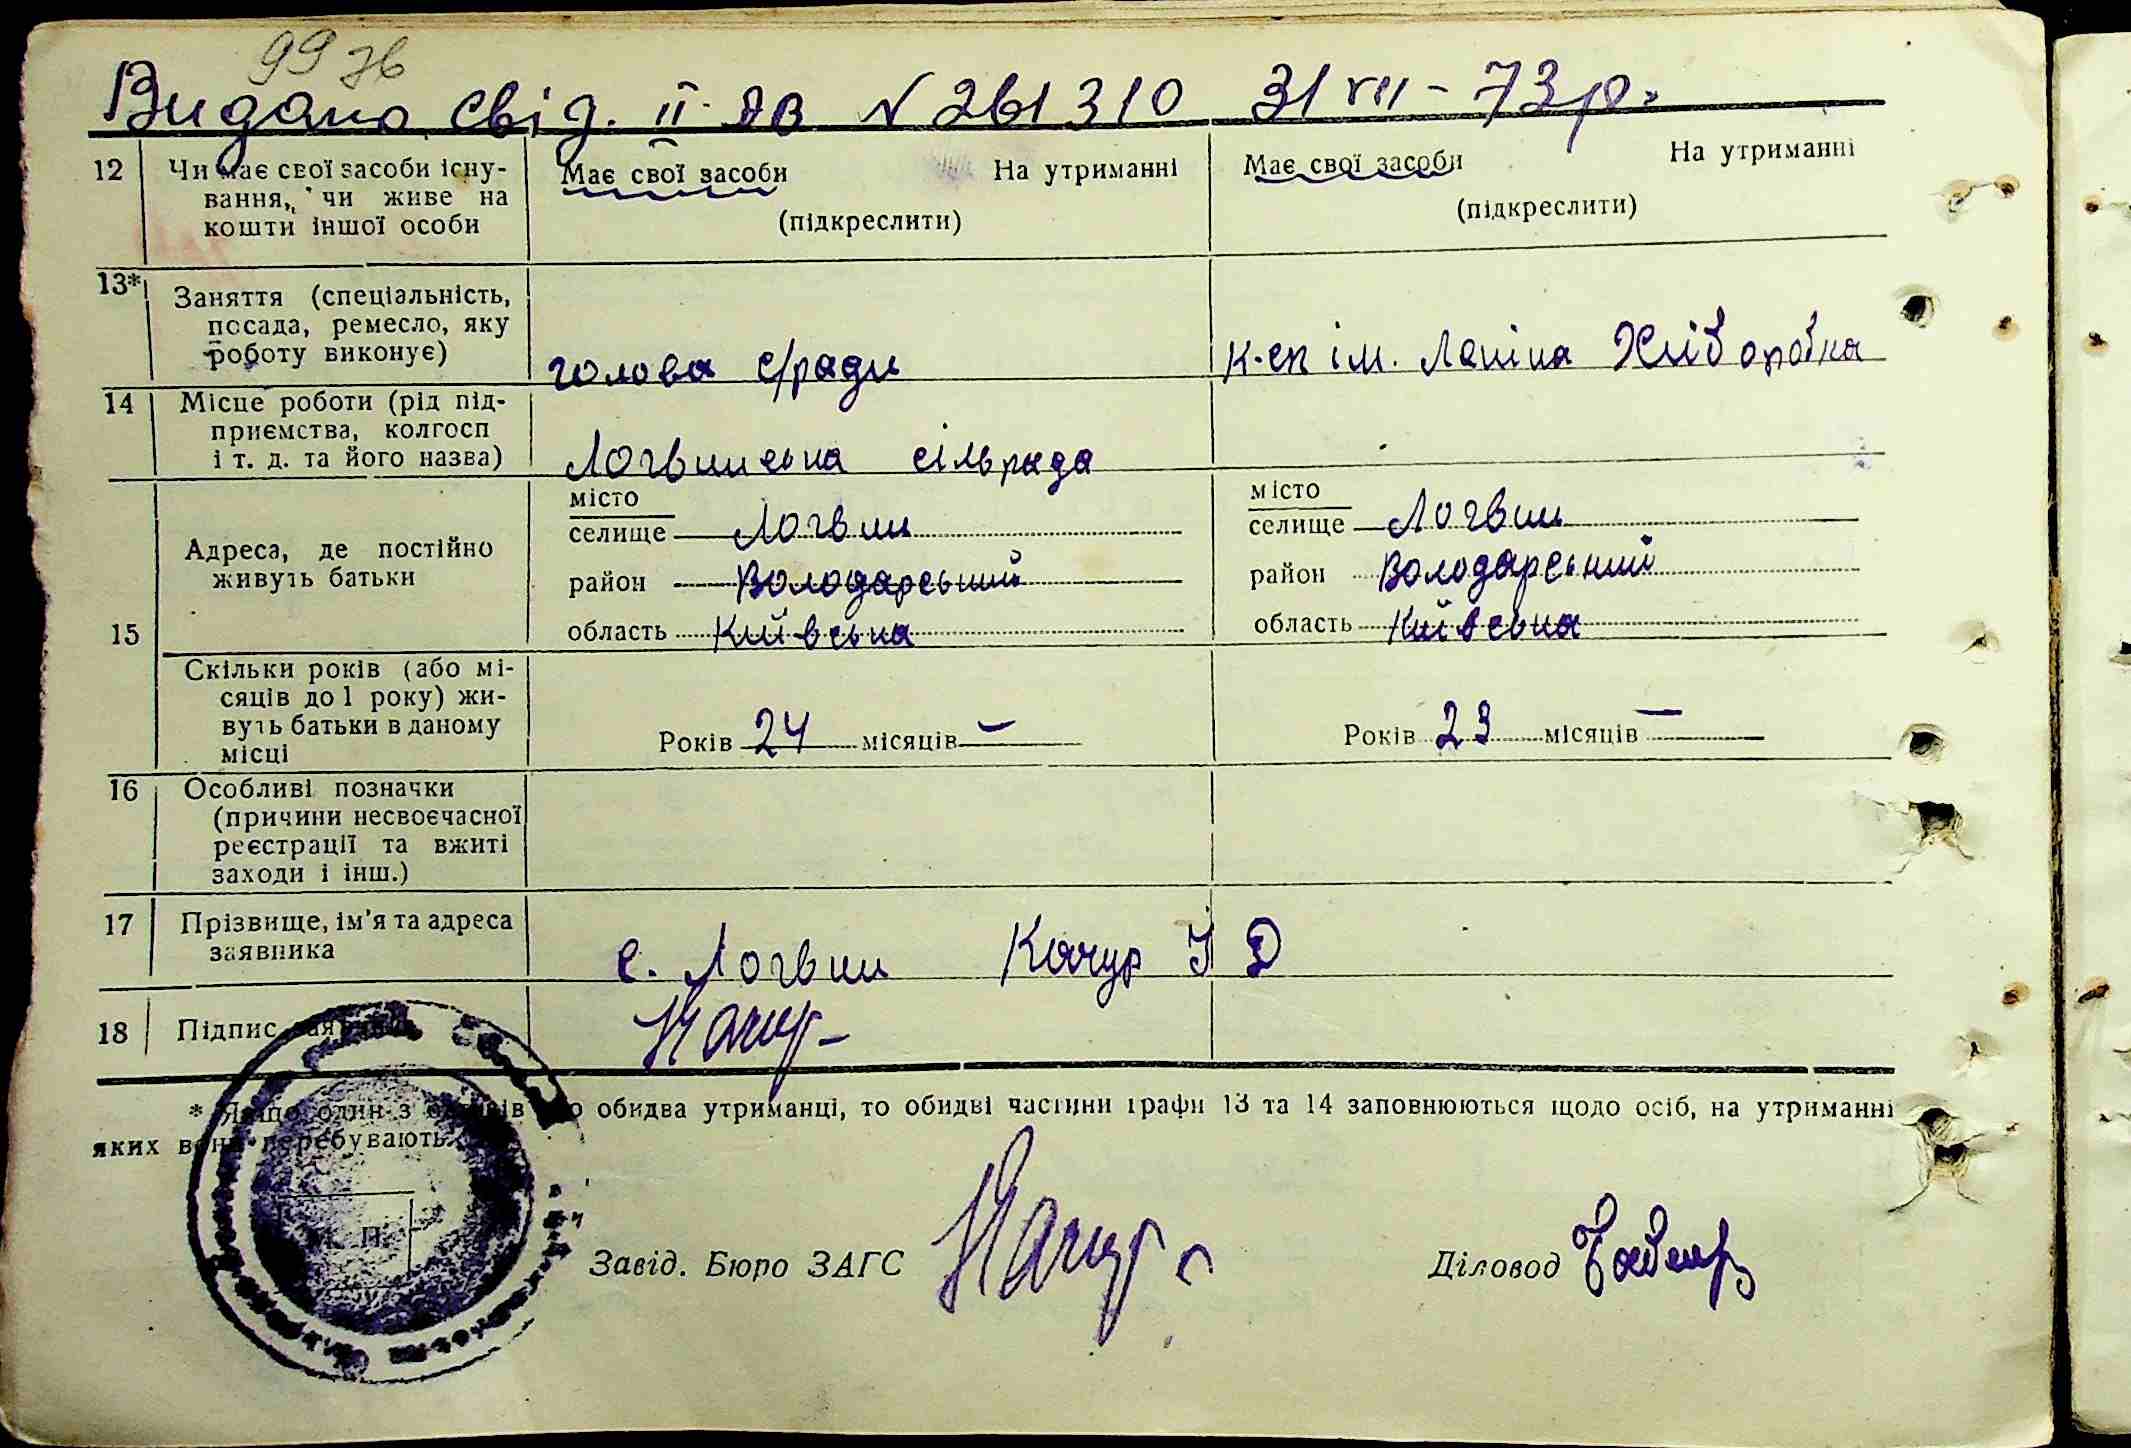 99 зв
Видано свід. II-АВ N 261310 31 VII - 73 р.
12 Чи має свої засоби існу-
вання, чи живе на
кошти іншої особи
Має свої засоби На утриманні
(підкреслити)
Має свої засоби На утриманні
(підкреслити)
13* Заняття (спеціальність,
посада, ремесло, яку
роботу виконує)
голова с/ради
к-сп ім. Леніна Хліборобка
14 Місце роботи (рід під-
приємства, колгосп
і т. д. та його назва)
Логвинська сільрада
15 Адреса, де постійно
живуть батьки
місто
селище Логвин
район Володарський
область Київська
місто
селище Логвин
район Володарський
область Київська
Скільки років (або мі-
сяців до 1 року) жи-
вуть батьки в даному
місці
Років 24 місяців —
Років 23 місяців —
16 Особливі позначки
(причини несвоєчасної
реєстрації та вжиті
заходи і інш.)
17 Прізвище, ім'я та адреса
заявника
с. Логвин Качур І Д
18 Підпис заявника
Качур
* Якщо один з батьків або обидва утриманці, то обидві частини графи 13 та 14 заповнюються щодо осіб, на утриманні
яких вони перебувають.
М. П.
Завід. Бюро ЗАГС Качур
Діловод